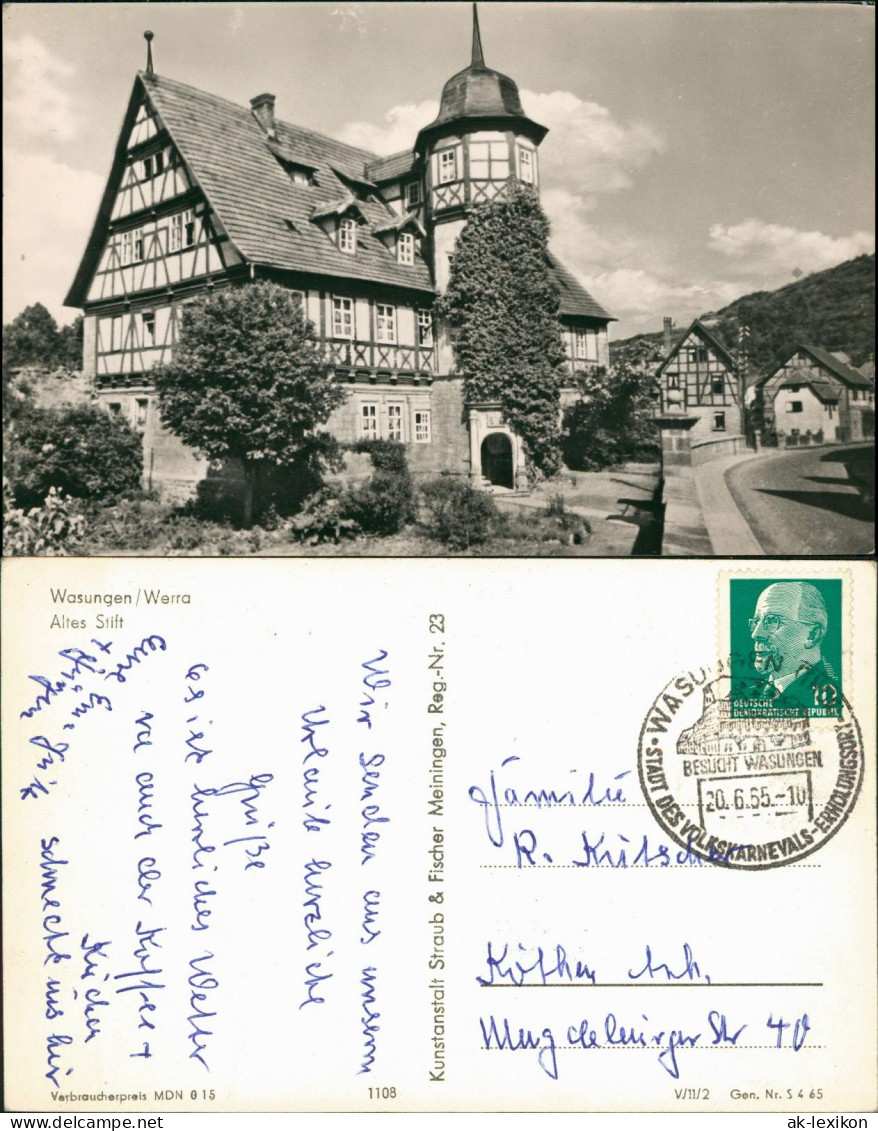 Wasungen/Werra
Altes Stift
Wir senden aus unserm
Urlaub herzliche
Grüße
es ist herrliches Wetter
auch der Kaffee +
Kuchen
schmeckt uns hier
Kunstanstalt Straub & Fischer Meiningen, Reg.-Nr. 23
DEUTSCHE
DEMOKRATISCHE REPUBLIK
10
WASUNGEN
BESUCHT WASUNGEN
20.6.65.-10
STADT DES VOLKSKARNEVALS-ERHOLUNGSORT
Familie
R. Kutscher
Köthen Anh.
Magdeburger Str 40
Verbraucherpreis MDN 0 15
1108
V/11/2 Gen. Nr. S 4 65
ak-lexikon